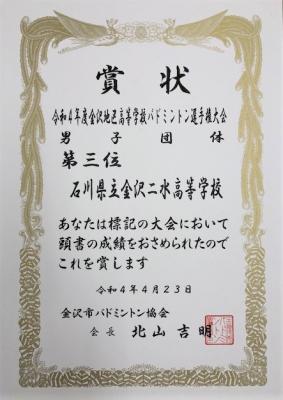 賞状
令和4年度金沢地区高等学校バドミントン選手権大会
男子団体
第三位
石川県立金沢二水高等学校
あなたは標記の大会において
頭書の成績をおさめられたので
これを賞します
令和4年4月23日
金沢市バドミントン協会
会長 北山吉明